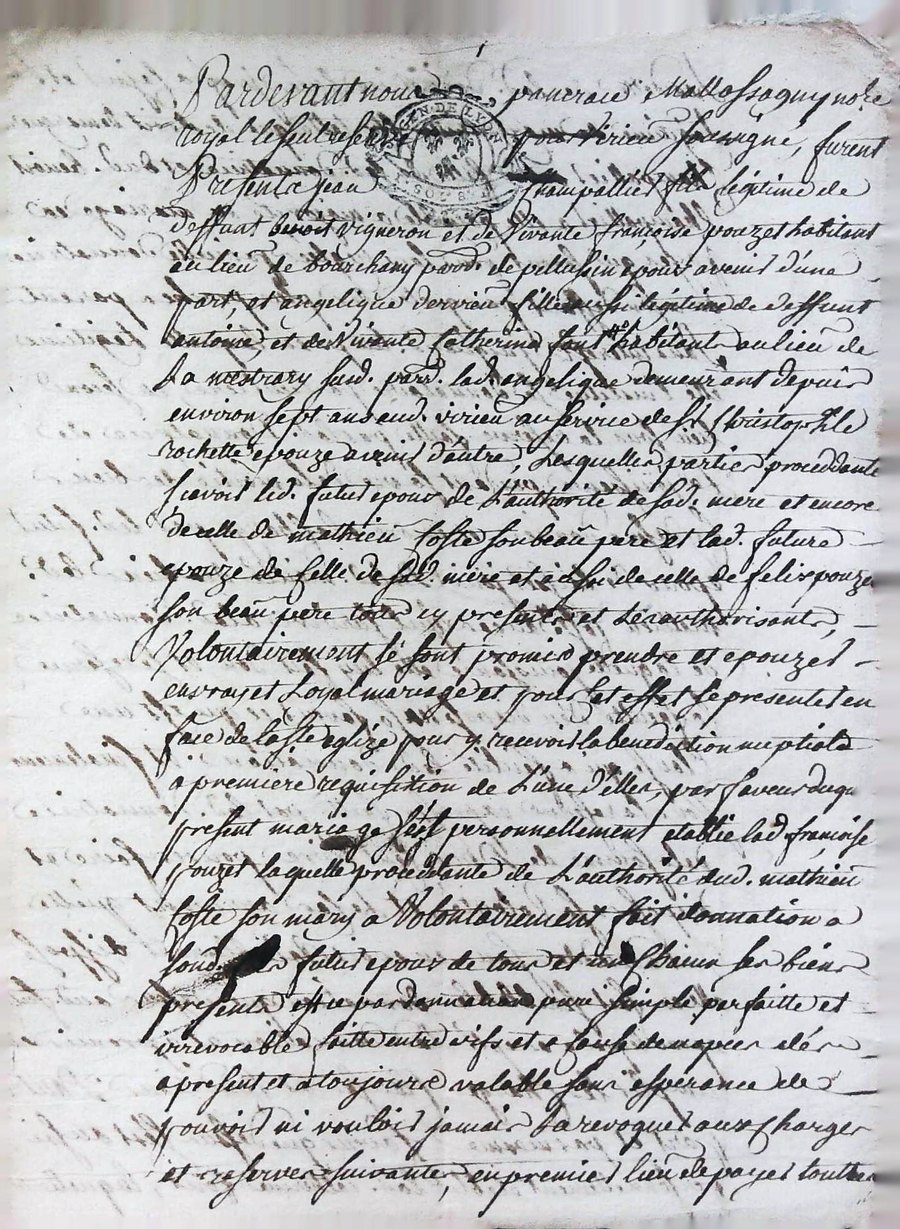 Pardevant nous pancrace Mallossagny no.re
royal le seul reservé pour Virieu soussigné, furent
Presents jean Champallier fils légitime de
deffunt benoit vigneron et de Vivante françoise pouzet habitant
au lieu de bourchany parr. de pellussin epoux avenir d'une
part, et angelique dervieux fille aussi légitime de deffunt
antoine, et de Vivante Catherine font habitants au lieu de
La mestrary susd. parr. lad. angelique demeurant depuis
environ sept ans aud. virieu au service de sr. Christophle
rochette epouze avenir d'autre, Lesquelles parties proceddants
scavoir led. futur epoux de L'authorité de sad. mere et encore
de celle de mathieu Coste son beau pere et lad. future
epouze de Celle de sad. mere et aussi de celle de felix pouzet
son beau pere tous cy presents et Les authorisants,
Volontairement se sont promis prendre et epouzer
en vray et Loyal mariage et pour Cet effet se presenter en
face de la Ste eglize pour y recevoir la benediction nuptiale
a premiere requisition de L'une d'elles, par faveur duqu
present mariage s'est personnellement etablie lad. françoise
pouzet laquelle proceddante de L'authorité dud. mathieu
Coste son mary a Volontairement fait donnation a
sond. futur epoux de tous et un Chacun ses biens
presents et ce par donnation pure simple parfaitte et
irrevocable faitte entre vifs et a Cause de nopces des
a present et a toujours valable sans esperance de
pouvoir ni vouloir jamais La revoquer aux Charges
et reserves suivantes, en premier lieu de payer toutes